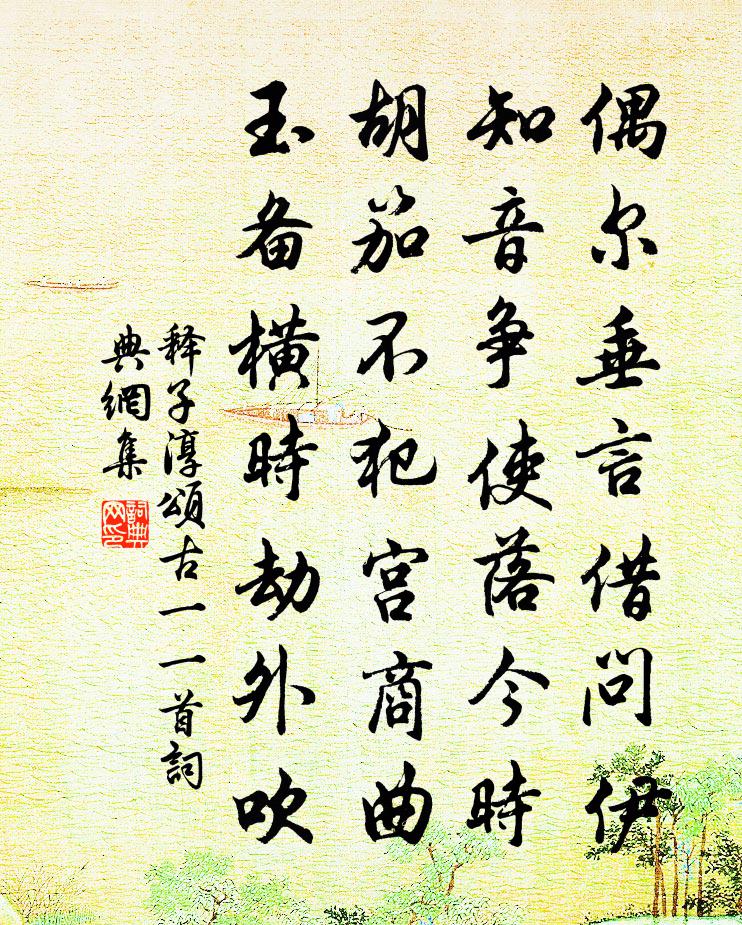 偶尔垂言借问伊
知音争使落今時
胡笳不犯宫商曲
玉备横時劫外吹
释子淳頌古一一首詞
典網集
詞典
网印